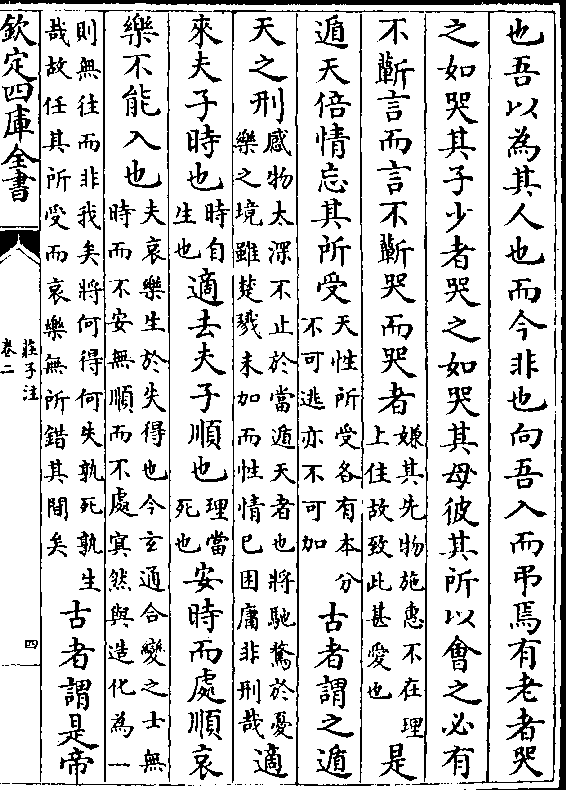 也吾以為其人也而今非也向吾入而弔焉有老者哭
之如哭其子少者哭之如哭其母彼其所以會之必有
不蘄言而言不蘄哭而哭者嫌其先物施惠不在理上住故致此甚愛也是
遁天倍情忘其所受天性所受各有本分不可逃亦不可加古者謂之遁
天之刑感物太深不止於當遁天者也將馳騖於憂樂之境雖楚戮未加而性情已困庸非刑哉適
來夫子時也時自生也適去夫子順也理當死也安時而處順哀
樂不能入也夫哀樂生於失得也今玄通合變之士無時而不安無順而不處㝠然與造化為一
則無往而非我矣將何得何失孰死孰生哉故任其所受而哀樂無所錯其間矣古者謂是帝
欽定四庫全書
莊子注
卷二
四